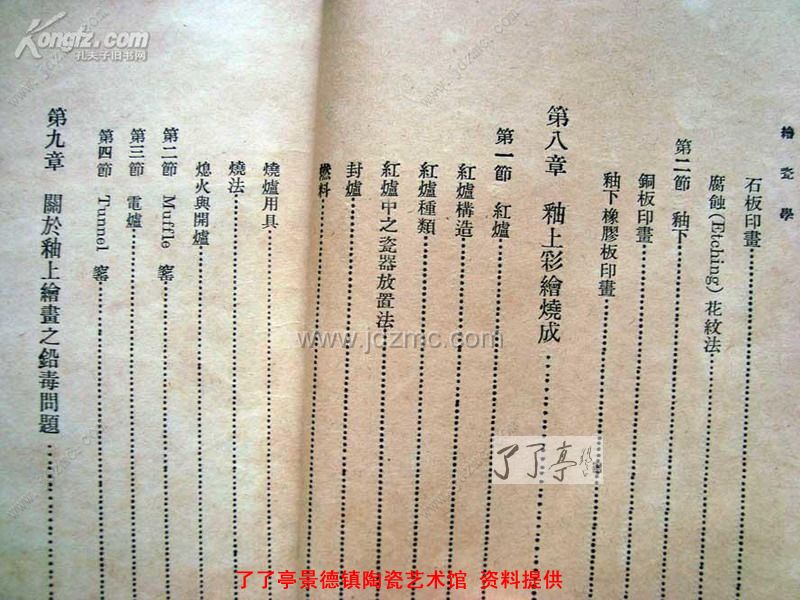 繪瓷學
石板印畫
腐蝕(Etching)花紋法
第二節 釉下
銅板印畫
釉下橡膠板印畫
第八章 釉上彩繪燒成
第一節 紅爐
紅爐構造
紅爐種類
紅爐中之瓷器放置法
封爐
燃料
燒爐用具
燒法
熄火與開爐
第二節 Muffle 窰
第三節 電爐
第四節 Tunnel 窰
第九章 關於釉上繪畫之鉛毒問題
Kongfz.com
孔夫子旧书网
www.jdzmc.com
了了亭
了了亭景德镇陶瓷艺术馆 资料提供